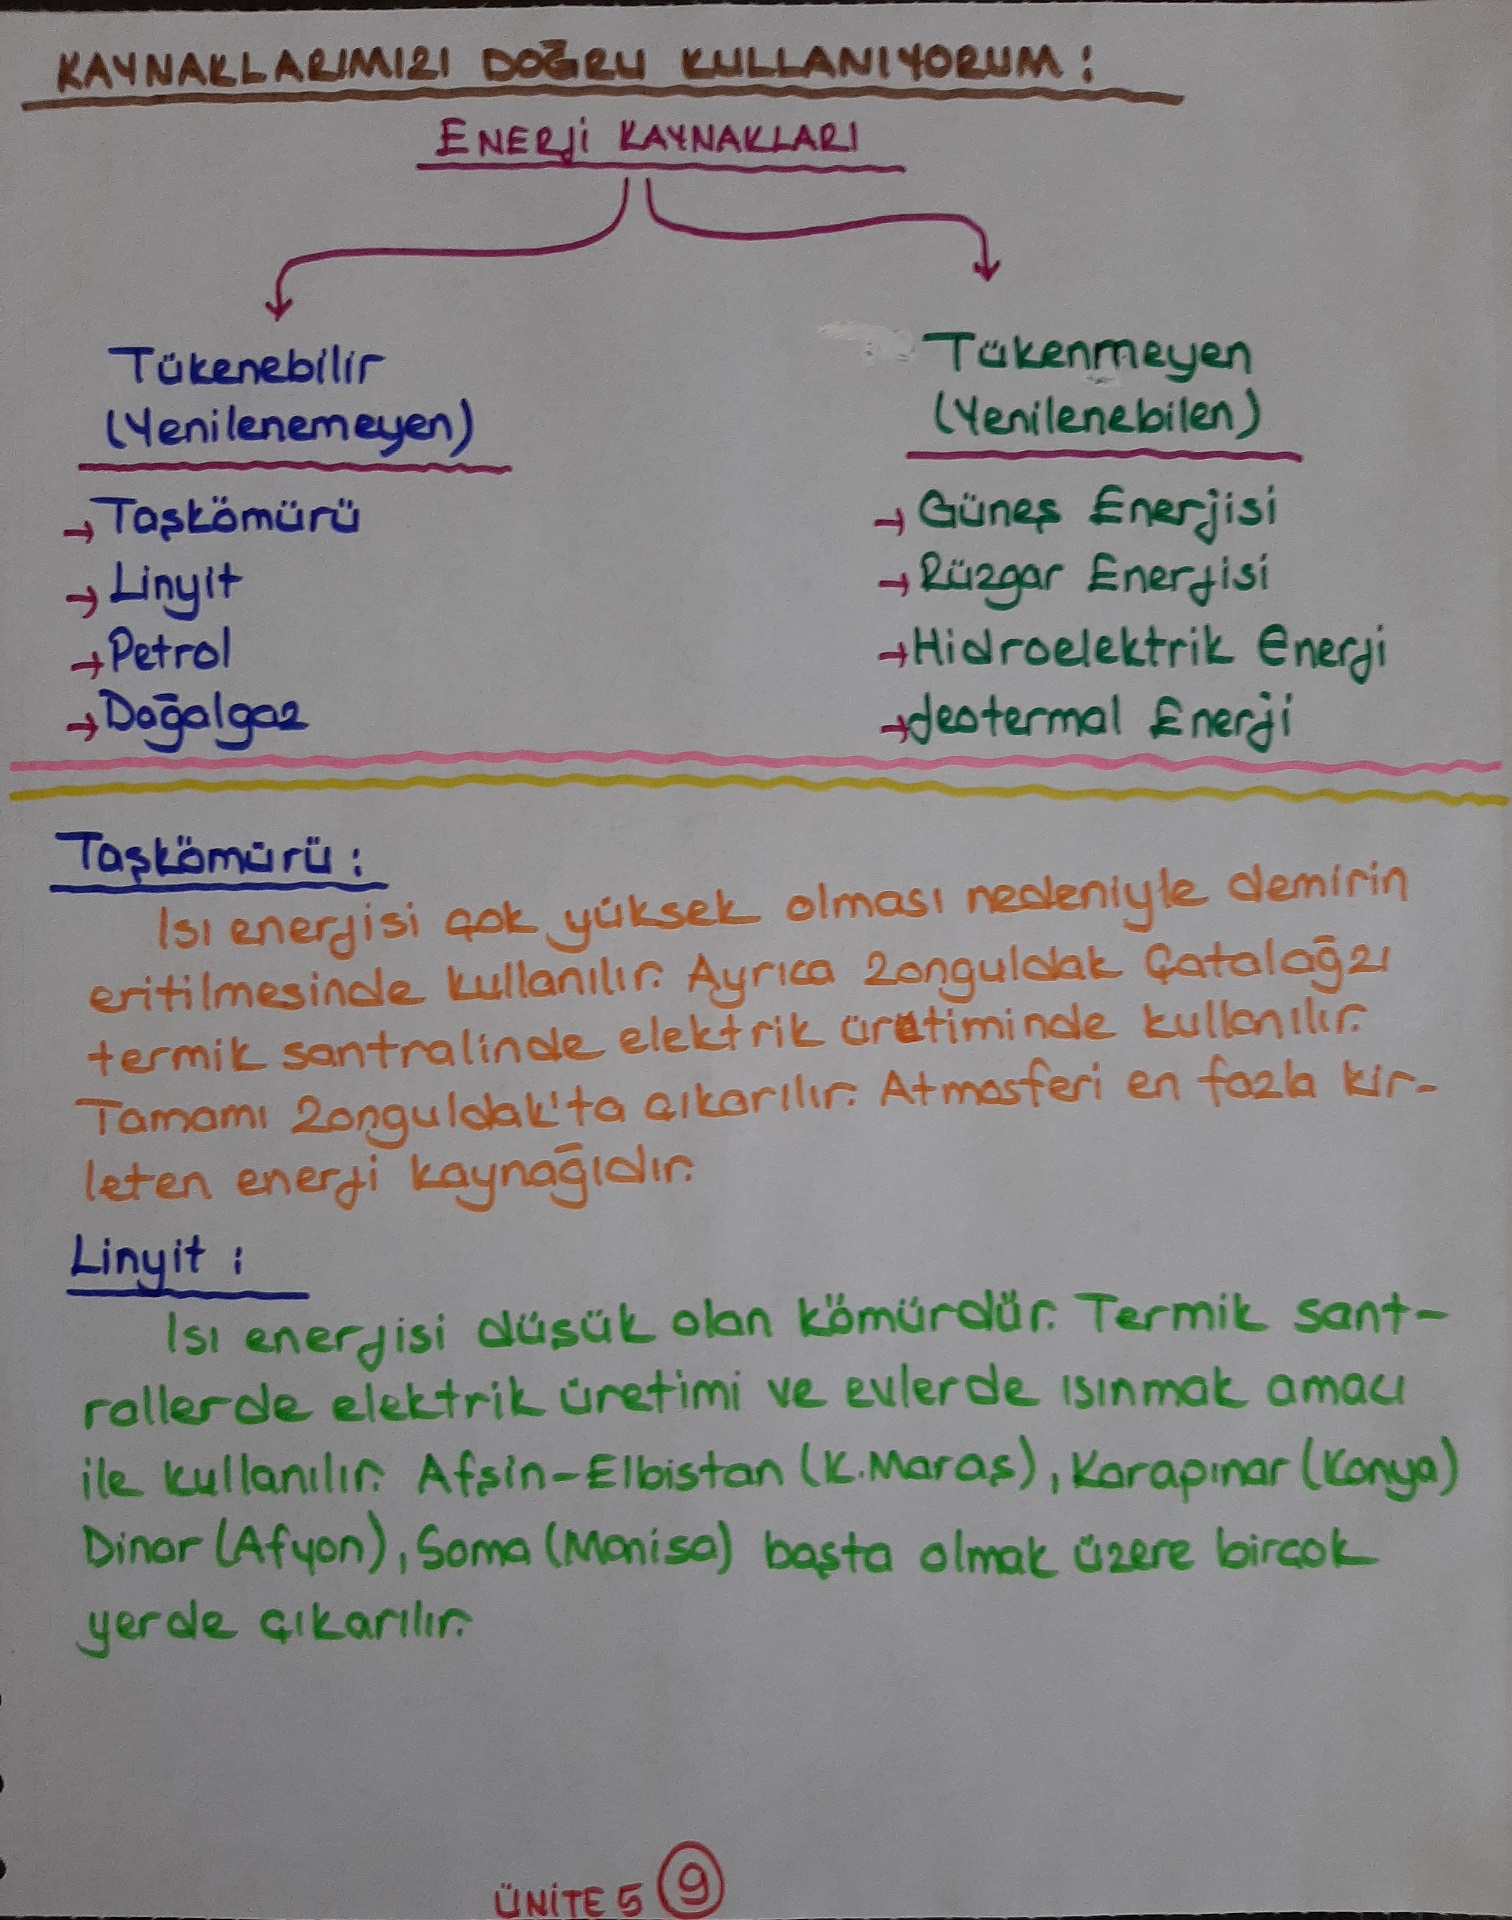 KAYNAKLARIMIZI DOĞRU KULLANIYORUM:
ENERJİ KAYNAKLARI
Tükenebilir
(Yenilenemeyen)
→ Taşkömürü
→ Linyit
→ Petrol
→ Doğalgaz
Tükenmeyen
(Yenilenebilen)
→ Güneş Enerjisi
→ Rüzgar Enerjisi
→ Hidroelektrik Enerji
→ Jeotermal Enerji
Taşkömürü:
Isı enerjisi çok yüksek olması nedeniyle demirin
eritilmesinde kullanılır. Ayrıca Zonguldak Çatalağzı
termik santralinde elektrik üretiminde kullanılır.
Tamamı Zonguldak'ta çıkarılır. Atmosferi en fazla kir-
leten enerji kaynağıdır.
Linyit:
Isı enerjisi düşük olan kömürdür. Termik sant-
rallerde elektrik üretimi ve evlerde ısınmak amacı
ile kullanılır. Afşin-Elbistan (K.Maraş), Karapınar (Konya)
Dinar (Afyon), Soma (Manisa) başta olmak üzere birçok
yerde çıkarılır.
ÜNİTE 5 9